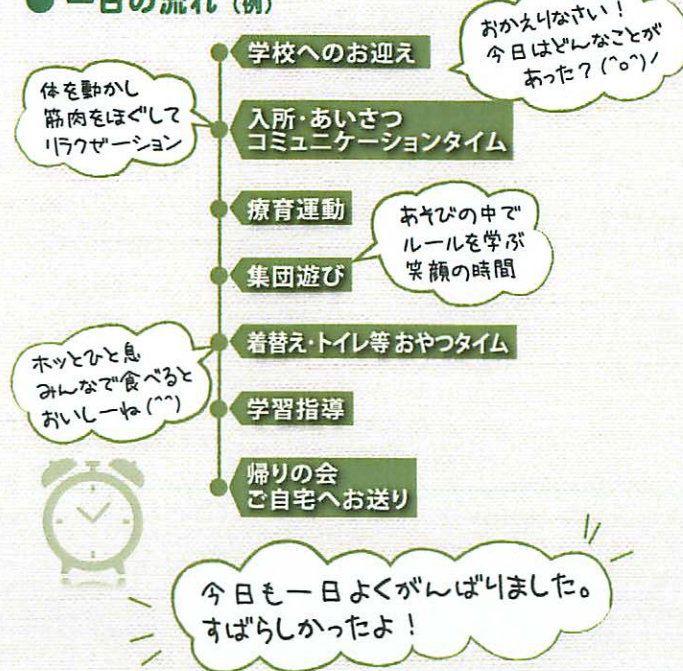 ●一日の流れ（例）
学校へのお迎え
おかえりなさい！
今日はどんなことが
あった？(^o^)/
体を動かし
筋肉をほぐして
リラクゼーション
入所・あいさつ
コミュニケーションタイム
療育運動
あそびの中で
ルールを学ぶ
笑顔の時間
集団遊び
着替え・トイレ等 おやつタイム
ホッとひと息
みんなで食べると
おいしーね(^^)
学習指導
帰りの会
ご自宅へお送り
今日も一日よくがんばりました。
すばらしかったよ！